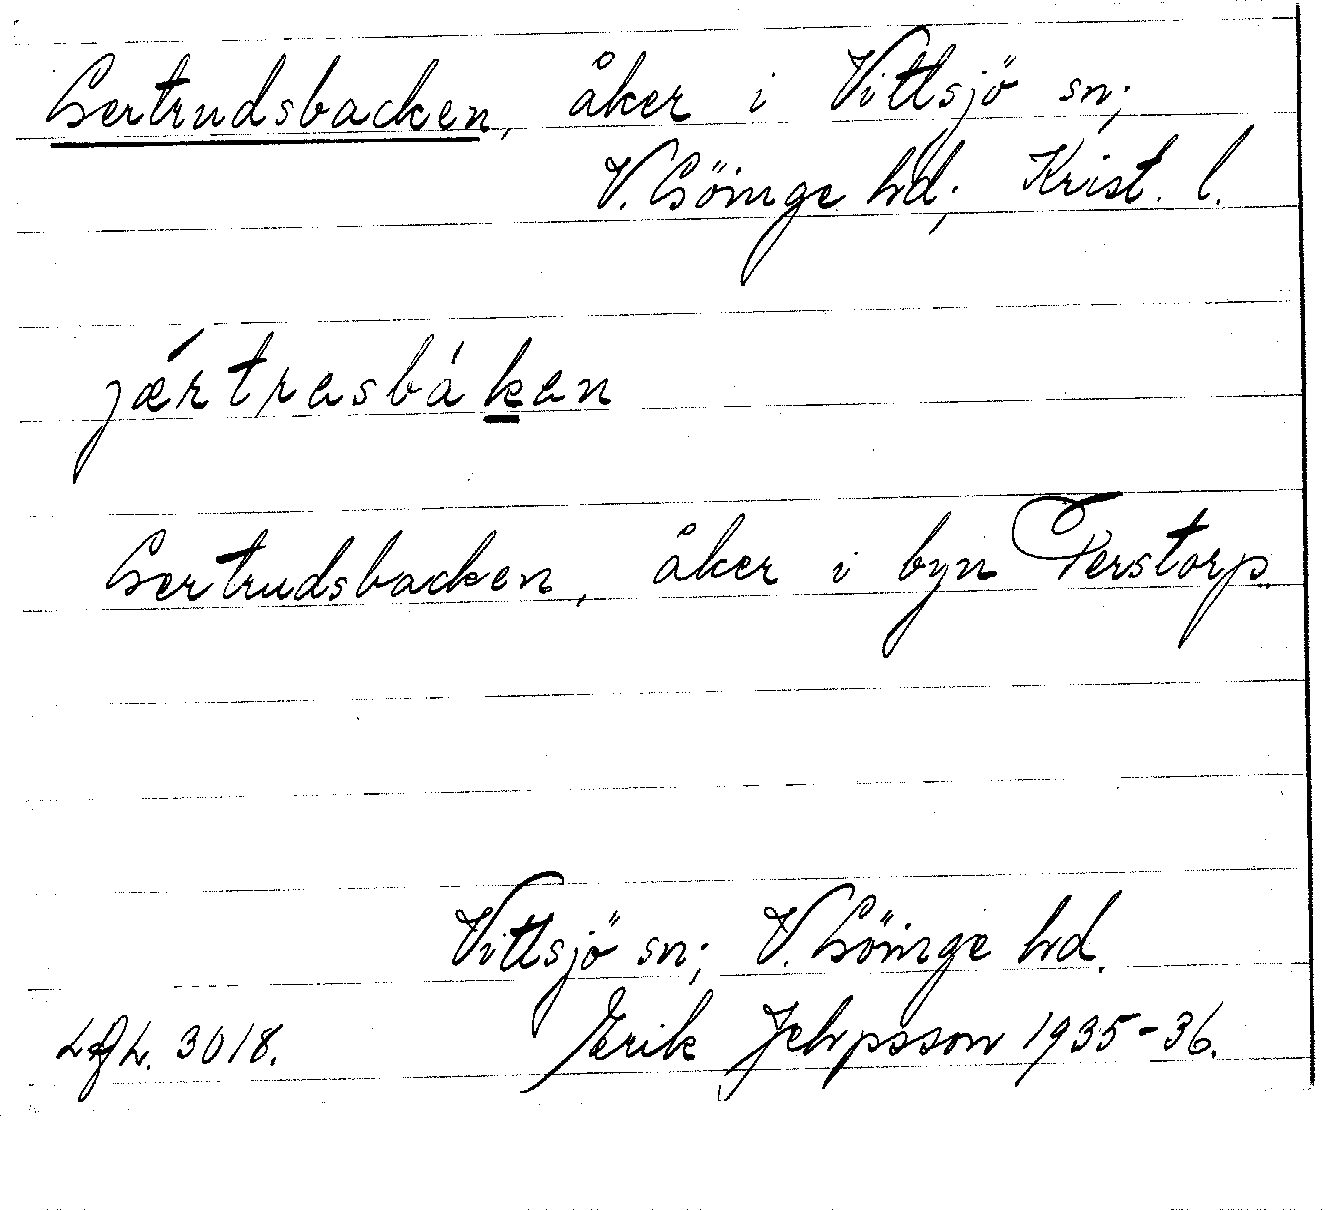 Gertrudsbacken, åker i Vittsjö sn;
V. Göinge hd; Krist. l.
jǽrtrasbákan
Gertrudsbacken, åker i byn Perstorp
Vittsjö sn; V. Göinge hd.
3018. Erik Jeppsson 1935-36.